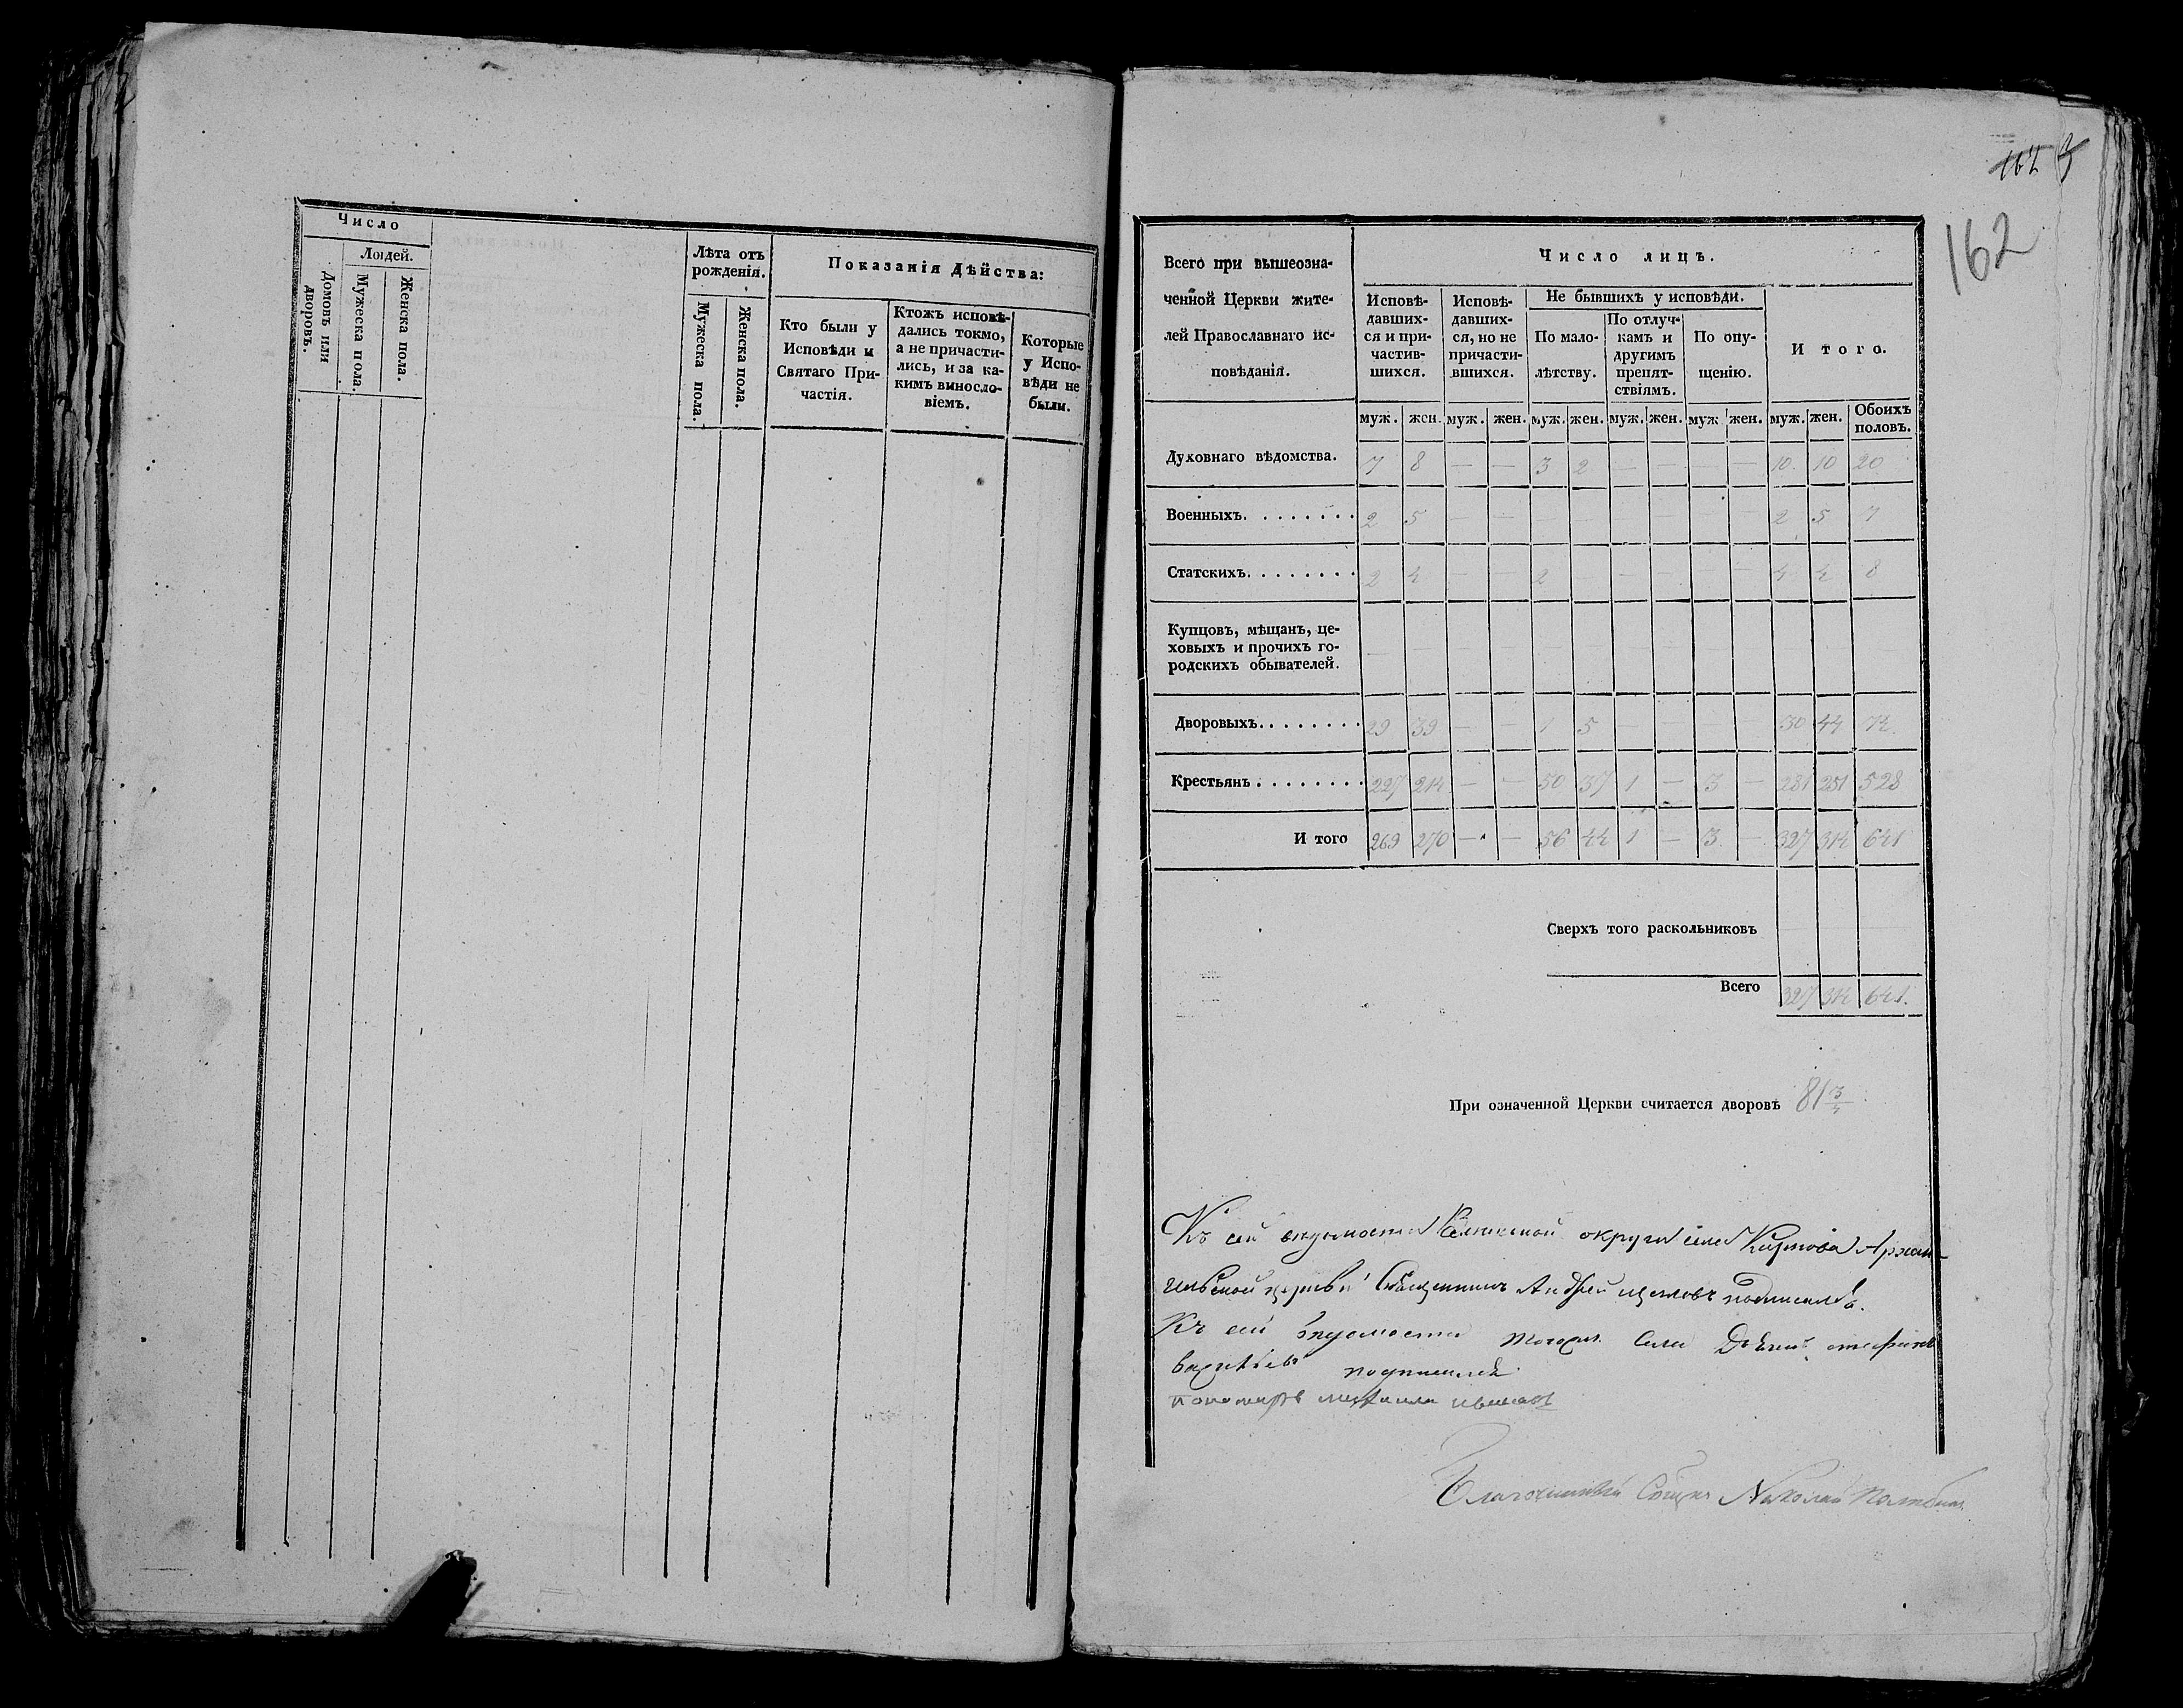 Число
Людей.
Домовъ или
дворовъ.
Мужеска пола.
Женска пола.
Лѣта отъ
рожденія.
Мужеска пола.
Женска пола.
Показанія Дѣйства:
Кто были у
Исповѣди и
Святаго При-
частія.
Ктожъ исповѣ-
дались токмо,
а не причасти-
лись, и за ка-
кимъ винос­ло-
віемъ.
Которые
у Испо-
вѣди не
были.
162 3
162
Всего при вышеозна-
ченной Церкви жите-
лей Православнаго ис-
повѣданія.
Число лицъ.
Исповѣ-
давших-
ся и при-
частив-
шихся.
Исповѣ-
давших-
ся, но не
причасти-
вшихся.
Не бывшихъ у исповѣди.
По мало-
лѣтству.
По отлуч-
камъ и
другимъ
препят-
ствіямъ.
По опу-
щенію.
И того.
муж. жен. муж. жен. муж. жен. муж. жен. муж жен. муж. жен. Обоихъ
половъ.
Духовнаго вѣдомства. 7 8 — — 3 2 — — — — 10. 10 20
Военныхъ. . . . . . . . 2 5 — — — — — — — — 2 5 7
Статскихъ. . . . . . . . 2 4 — — 2 — — — — — 4 4 8
Купцовъ, мѣщанъ, це-
ховыхъ и прочихъ го-
родскихъ обывателей.
Дворовыхъ. . . . . . . . 29 39 — — 1 5 — — — — 30 44 74.
Крестьянъ . . . . . . . . 227 214 — — 50 37 1 — 3 — 281 251 528
И того 269 270 — — 56 44 1 — 3 — 327 314 641
Сверхъ того раскольниковъ
Всего 327 314 641.
При означенной Церкви считается дворовъ 81 3/4
Къ сей ведомости округи села Архан-
гельской церкви Священникъ Андрей подписался.
Къ сей ведомости тогожъ села
подписался
пономарь михаила ивановъ
Благочинный Николай